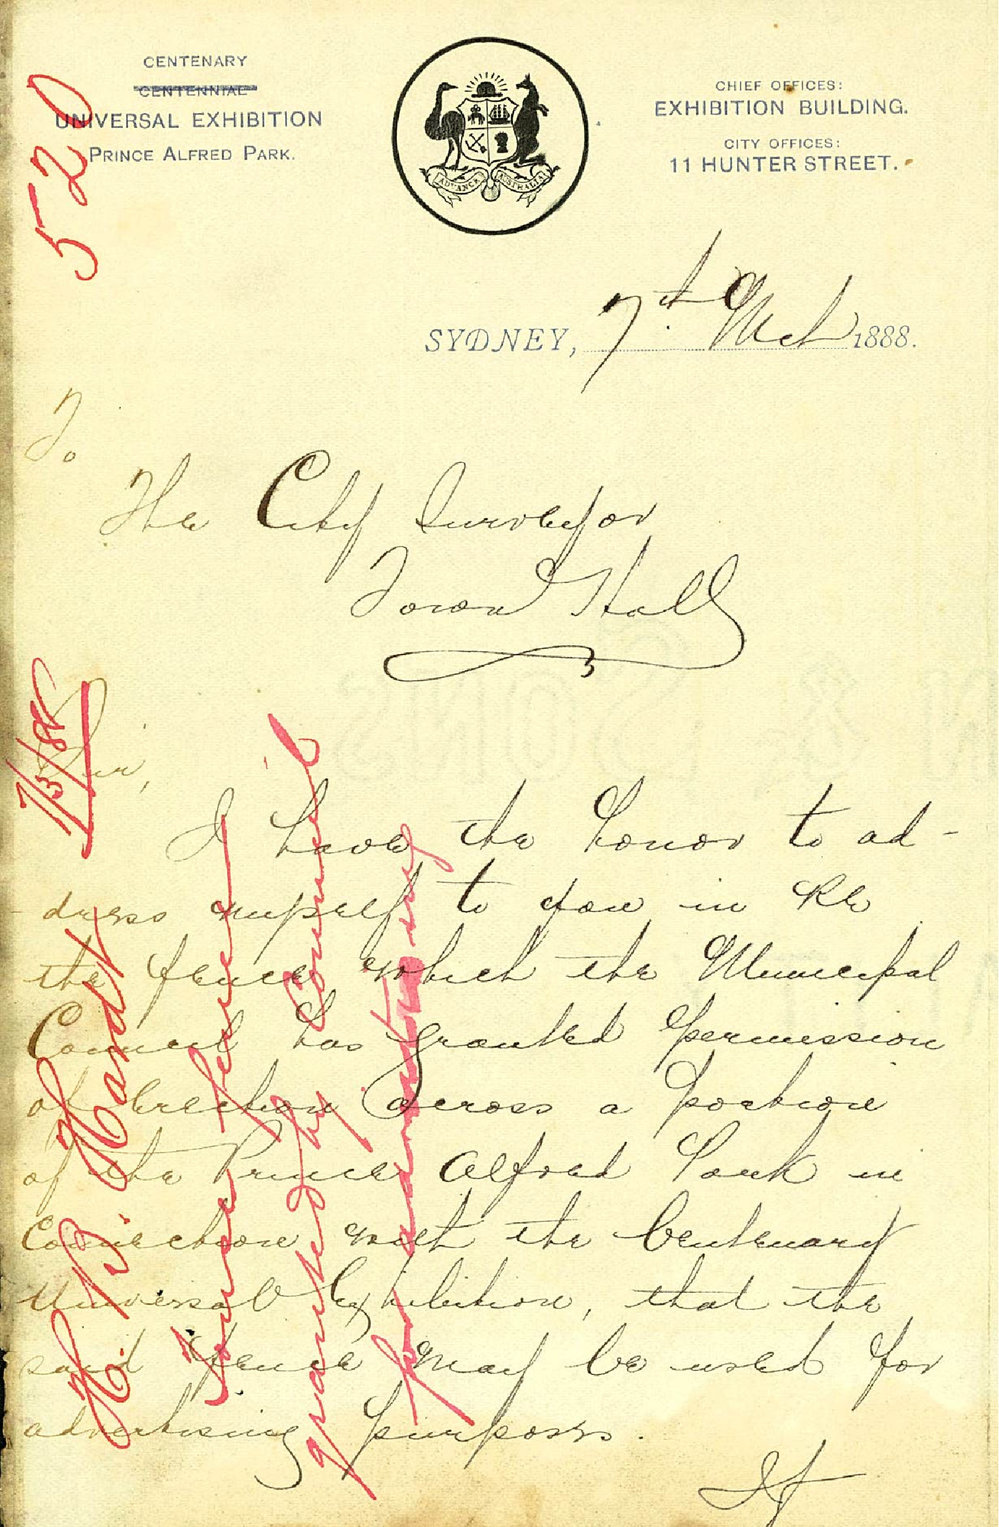 CENTENARY
CENTENNIAL
UNIVERSAL EXHIBITION
PRINCE ALFRED PARK.
ADVANCE AUSTRALIA
CHIEF OFFICES:
EXHIBITION BUILDING.
CITY OFFICES:
11 HUNTER STREET.
520
SYDNEY, 7th Mch 1888.
To
The City Surveyor
Town Hall
Sir,
I have the honor to ad-
dress myself to you in Re
the fence which the Municipal
Council has granted permission
of Erection across a portion
of the Prince Alfred Park in
Connection with the Centenary
Universal Exhibition, that the
said fence may be used for
advertising purposes.
If
H. B. Hardt 7/3/88
to use fence
granted by Council
for advertising